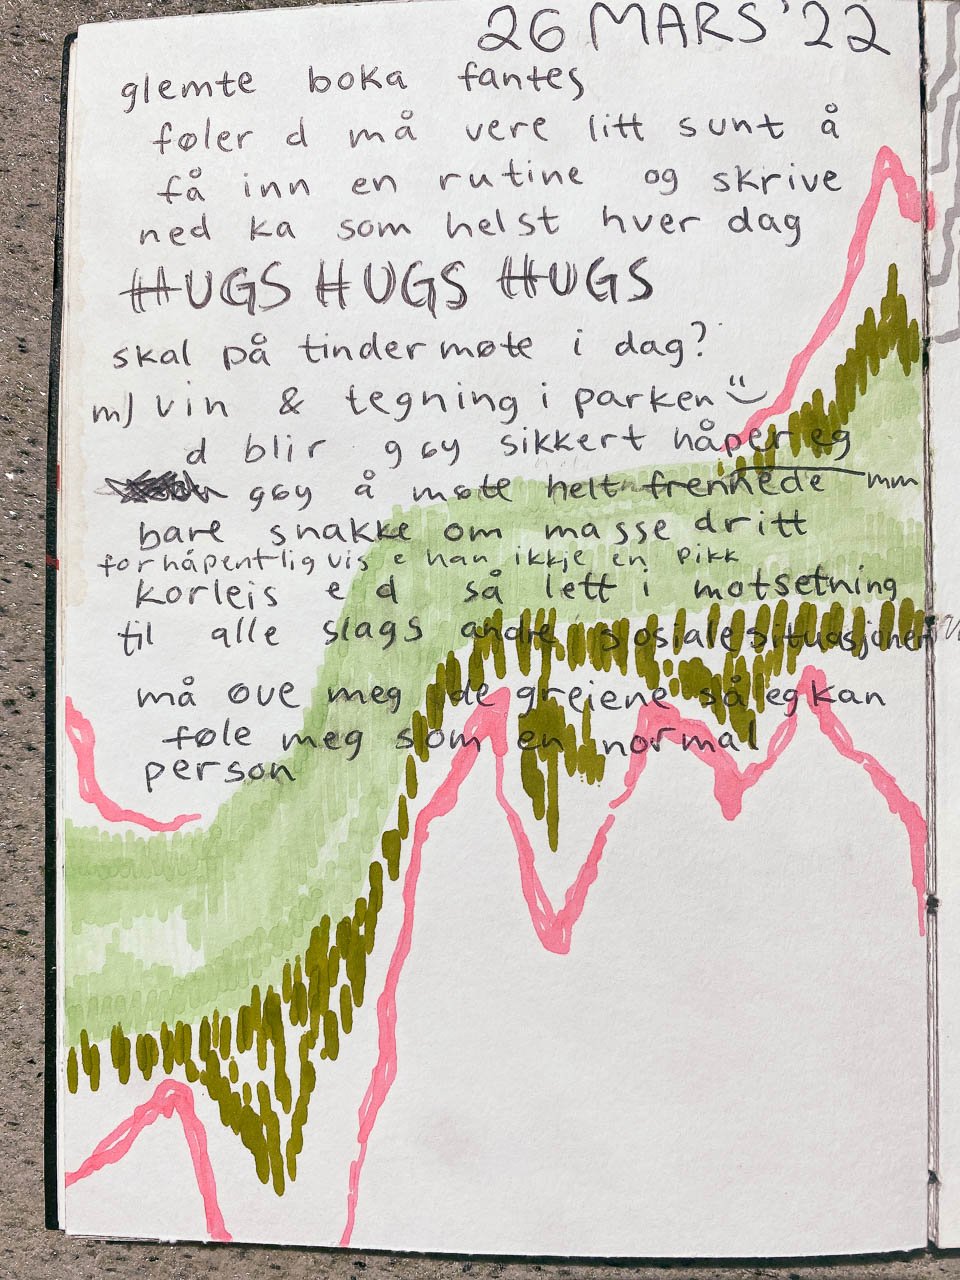 26 MARS '22
glemte boka fantes
føler d må vere litt sunt å
få inn en rutine og skrive
ned ka som helst hver dag
HUGS HUGS HUGS
skal på tindermøte i dag?
m/ vin & tegning i parken
d blir gøy sikkert håper eg
gøy å møte helt fremmede
bare snakke om masse dritt
forhåpentligvis e han ikkje en pikk
korleis e d så lett i motsetning
til alle slags andre sosiale situasjoner
må øve meg de greiene så eg kan
føle meg som en normal
person